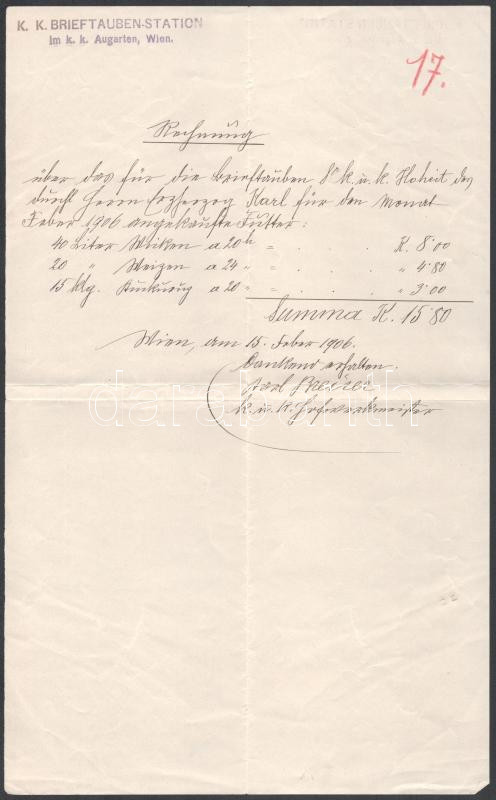 K. K. BRIEFTAUBEN-STATION
im k. k. Augarten, Wien.
17.
Rechnung
über das für die Brieftauben Sr k. u. k. Hoheit des
durchl Herrn Erzherzog Karl für den Monat
Feber 1906 angekaufte Futter:
40 Liter Wicken a 20 h = . . . K. 8·00
20 " Weizen a 24 " = . . . " 4·80
15 Klg. Kukuruz a 20 " = . . . " 3·00
Summa K. 15·80
Wien, am 15. Feber 1906.
Dankend erhalten.
k. u. k. Hofwerkmeister
darabanth